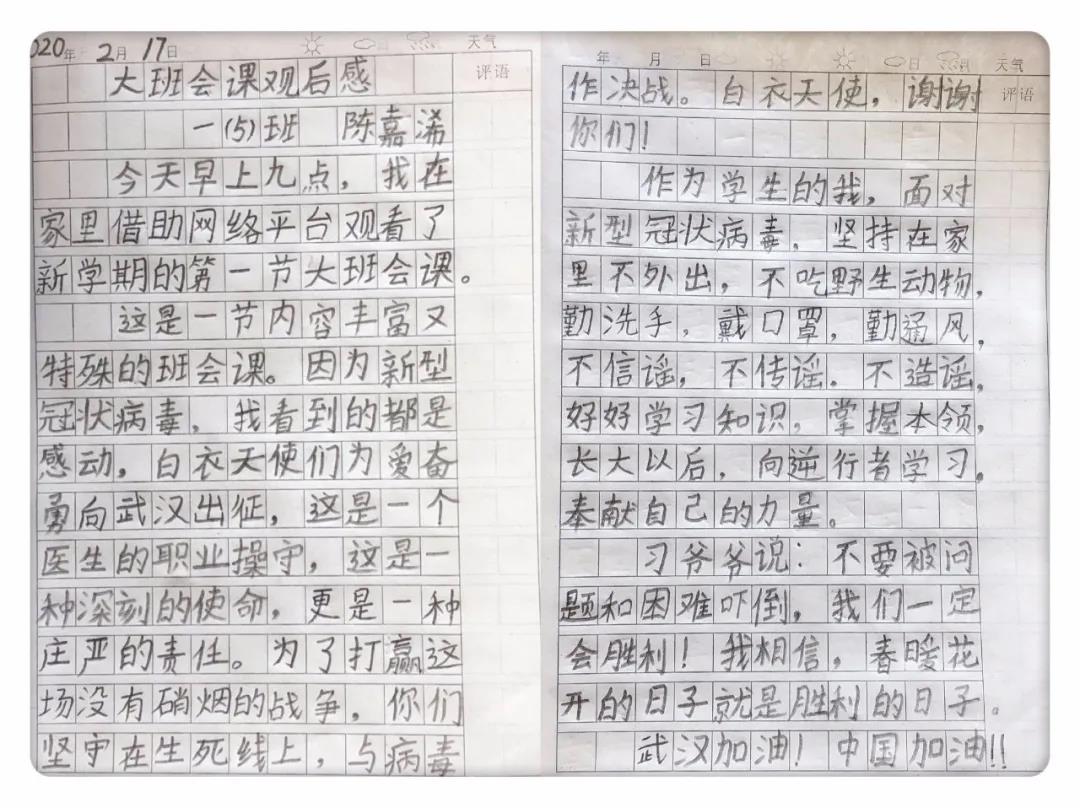 2020年2月17日 天气
大班会课观后感 评语
一(5)班 陈嘉浠
今天早上九点，我在
家里借助网络平台观看了
新学期的第一节大班会课。
这是一节内容丰富又
特殊的班会课。因为新型
冠状病毒，我看到的都是
感动，白衣天使们为爱奋
勇向武汉出征，这是一个
医生的职业操守，这是一
种深刻的使命，更是一种
庄严的责任。为了打赢这
场没有硝烟的战争，你们
坚守在生死线上，与病毒
年 月 日 天气
作决战。白衣天使，谢谢 评语
你们！
作为学生的我，面对
新型冠状病毒，坚持在家
里不外出，不吃野生动物，
勤洗手，戴口罩，勤通风，
不信谣，不传谣，不造谣，
好好学习知识，掌握本领，
长大以后，向逆行者学习，
奉献自己的力量。
习爷爷说：不要被问
题和困难吓倒，我们一定
会胜利！我相信，春暖花
开的日子就是胜利的日子。
武汉加油！中国加油！！